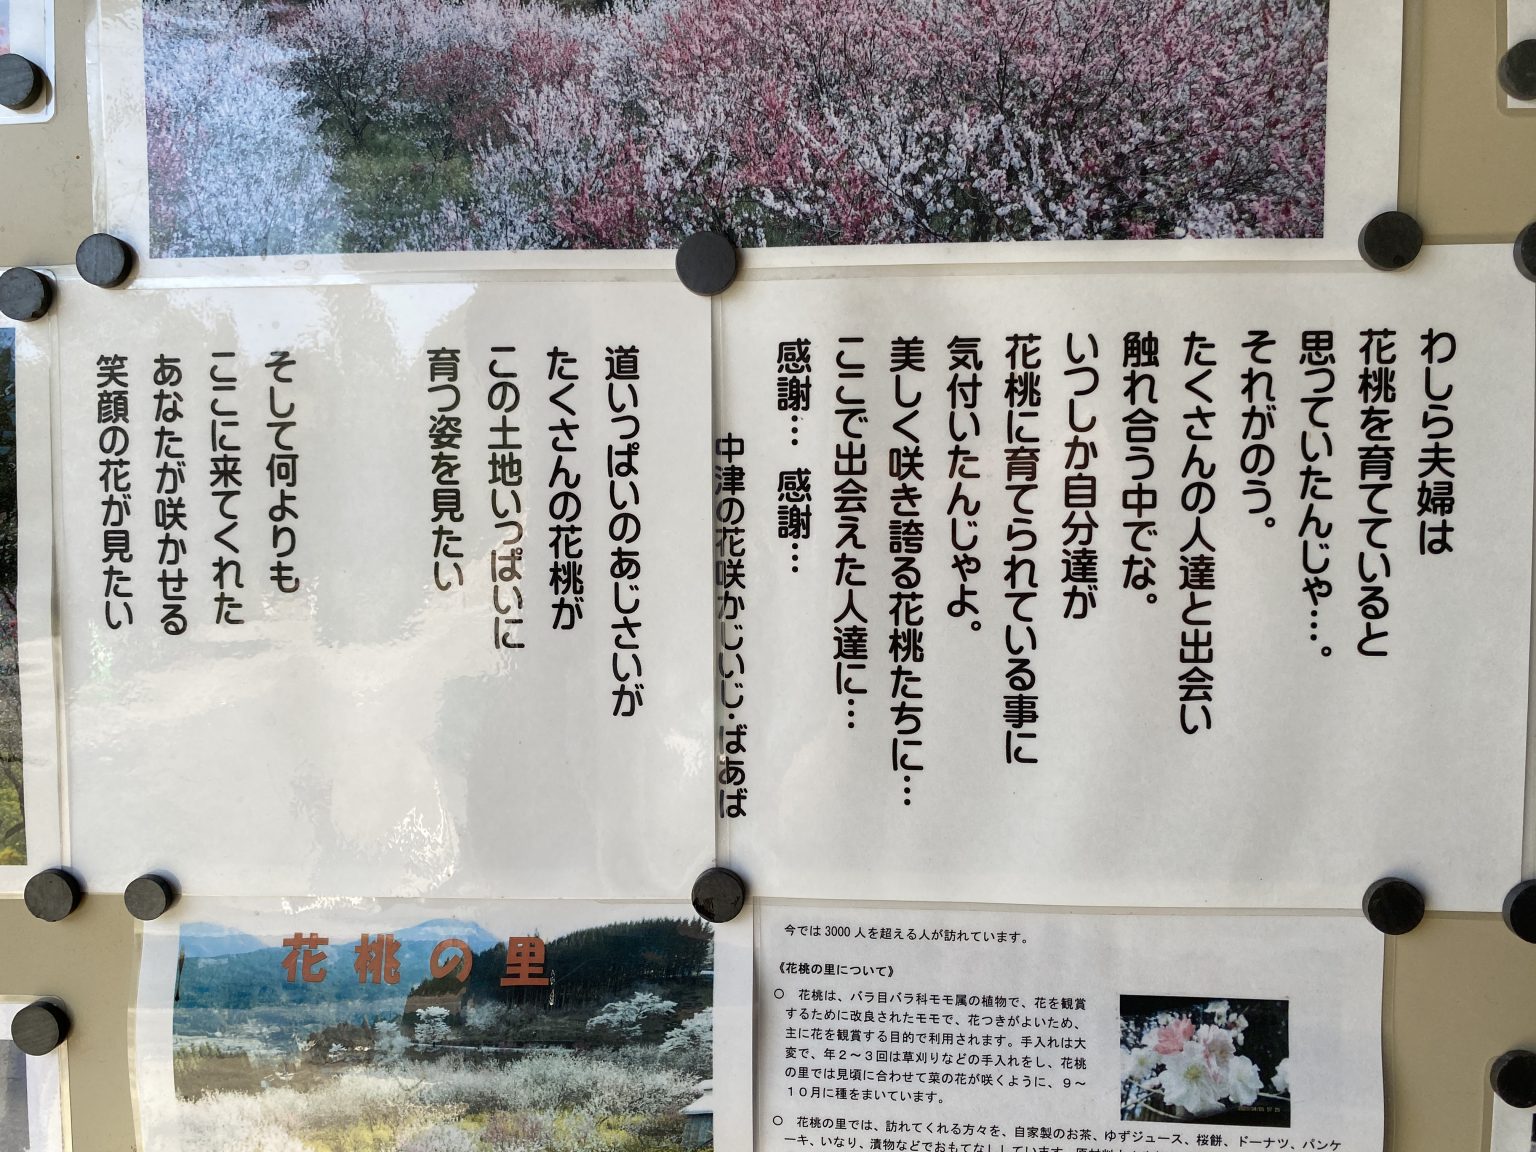 わしら夫婦は
花桃を育てていると
思っていたんじゃ…。
それがのう。
たくさんの人達と出会い
触れ合う中でな。
いつしか自分達が
花桃に育てられている事に
気付いたんじゃよ。
美しく咲き誇る花桃たちに…
ここで出会えた人達に…
感謝… 感謝…
中津の花咲かじいじ・ばあば
道いっぱいのあじさいが
たくさんの花桃が
この土地いっぱいに
育つ姿を見たい
そして何よりも
ここに来てくれた
あなたが咲かせる
笑顔の花が見たい
花桃の里
今では3000人を超える人が訪れています。
《花桃の里について》
○ 花桃は、バラ目バラ科モモ属の植物で、花を観賞
するために改良されたモモで、花つきがよいため、
主に花を観賞する目的で利用されます。手入れは大
変で、年2～3回は草刈りなどの手入れをし、花桃
の里では見頃に合わせて菜の花が咲くように、9～
10月に種をまいています。
○ 花桃の里では、訪れてくれる方々を、自家製のお茶、ゆずジュース、桜餅、ドーナツ、パンケ
ーキ、いなり、漬物などでおもてなししています。